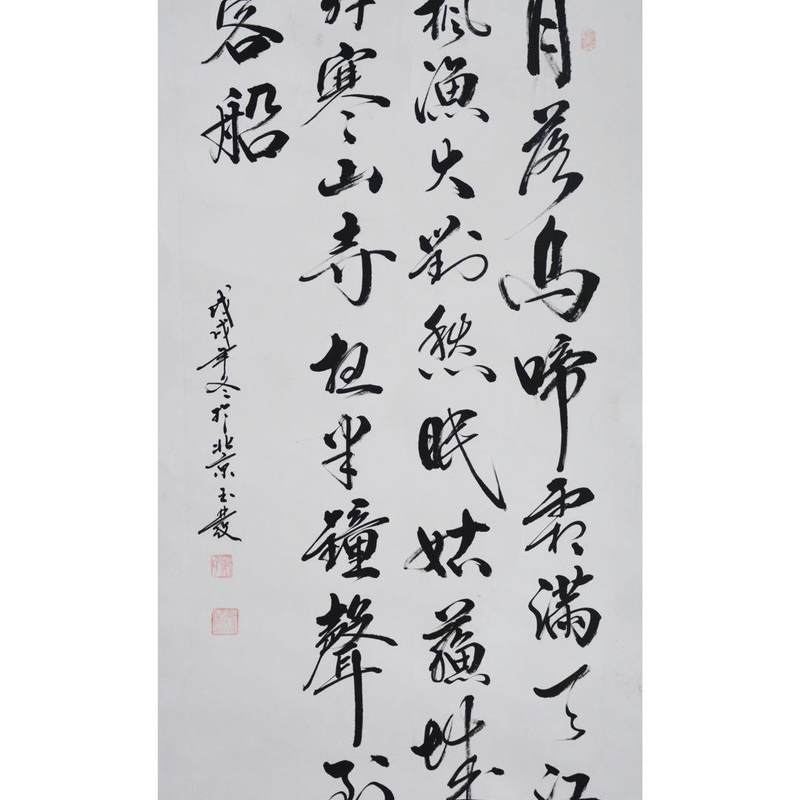 月落烏啼霜滿天江
楓漁火對愁眠姑蘇城
外寒山寺夜半鐘聲到
客船
戊戌年冬於北京玉發